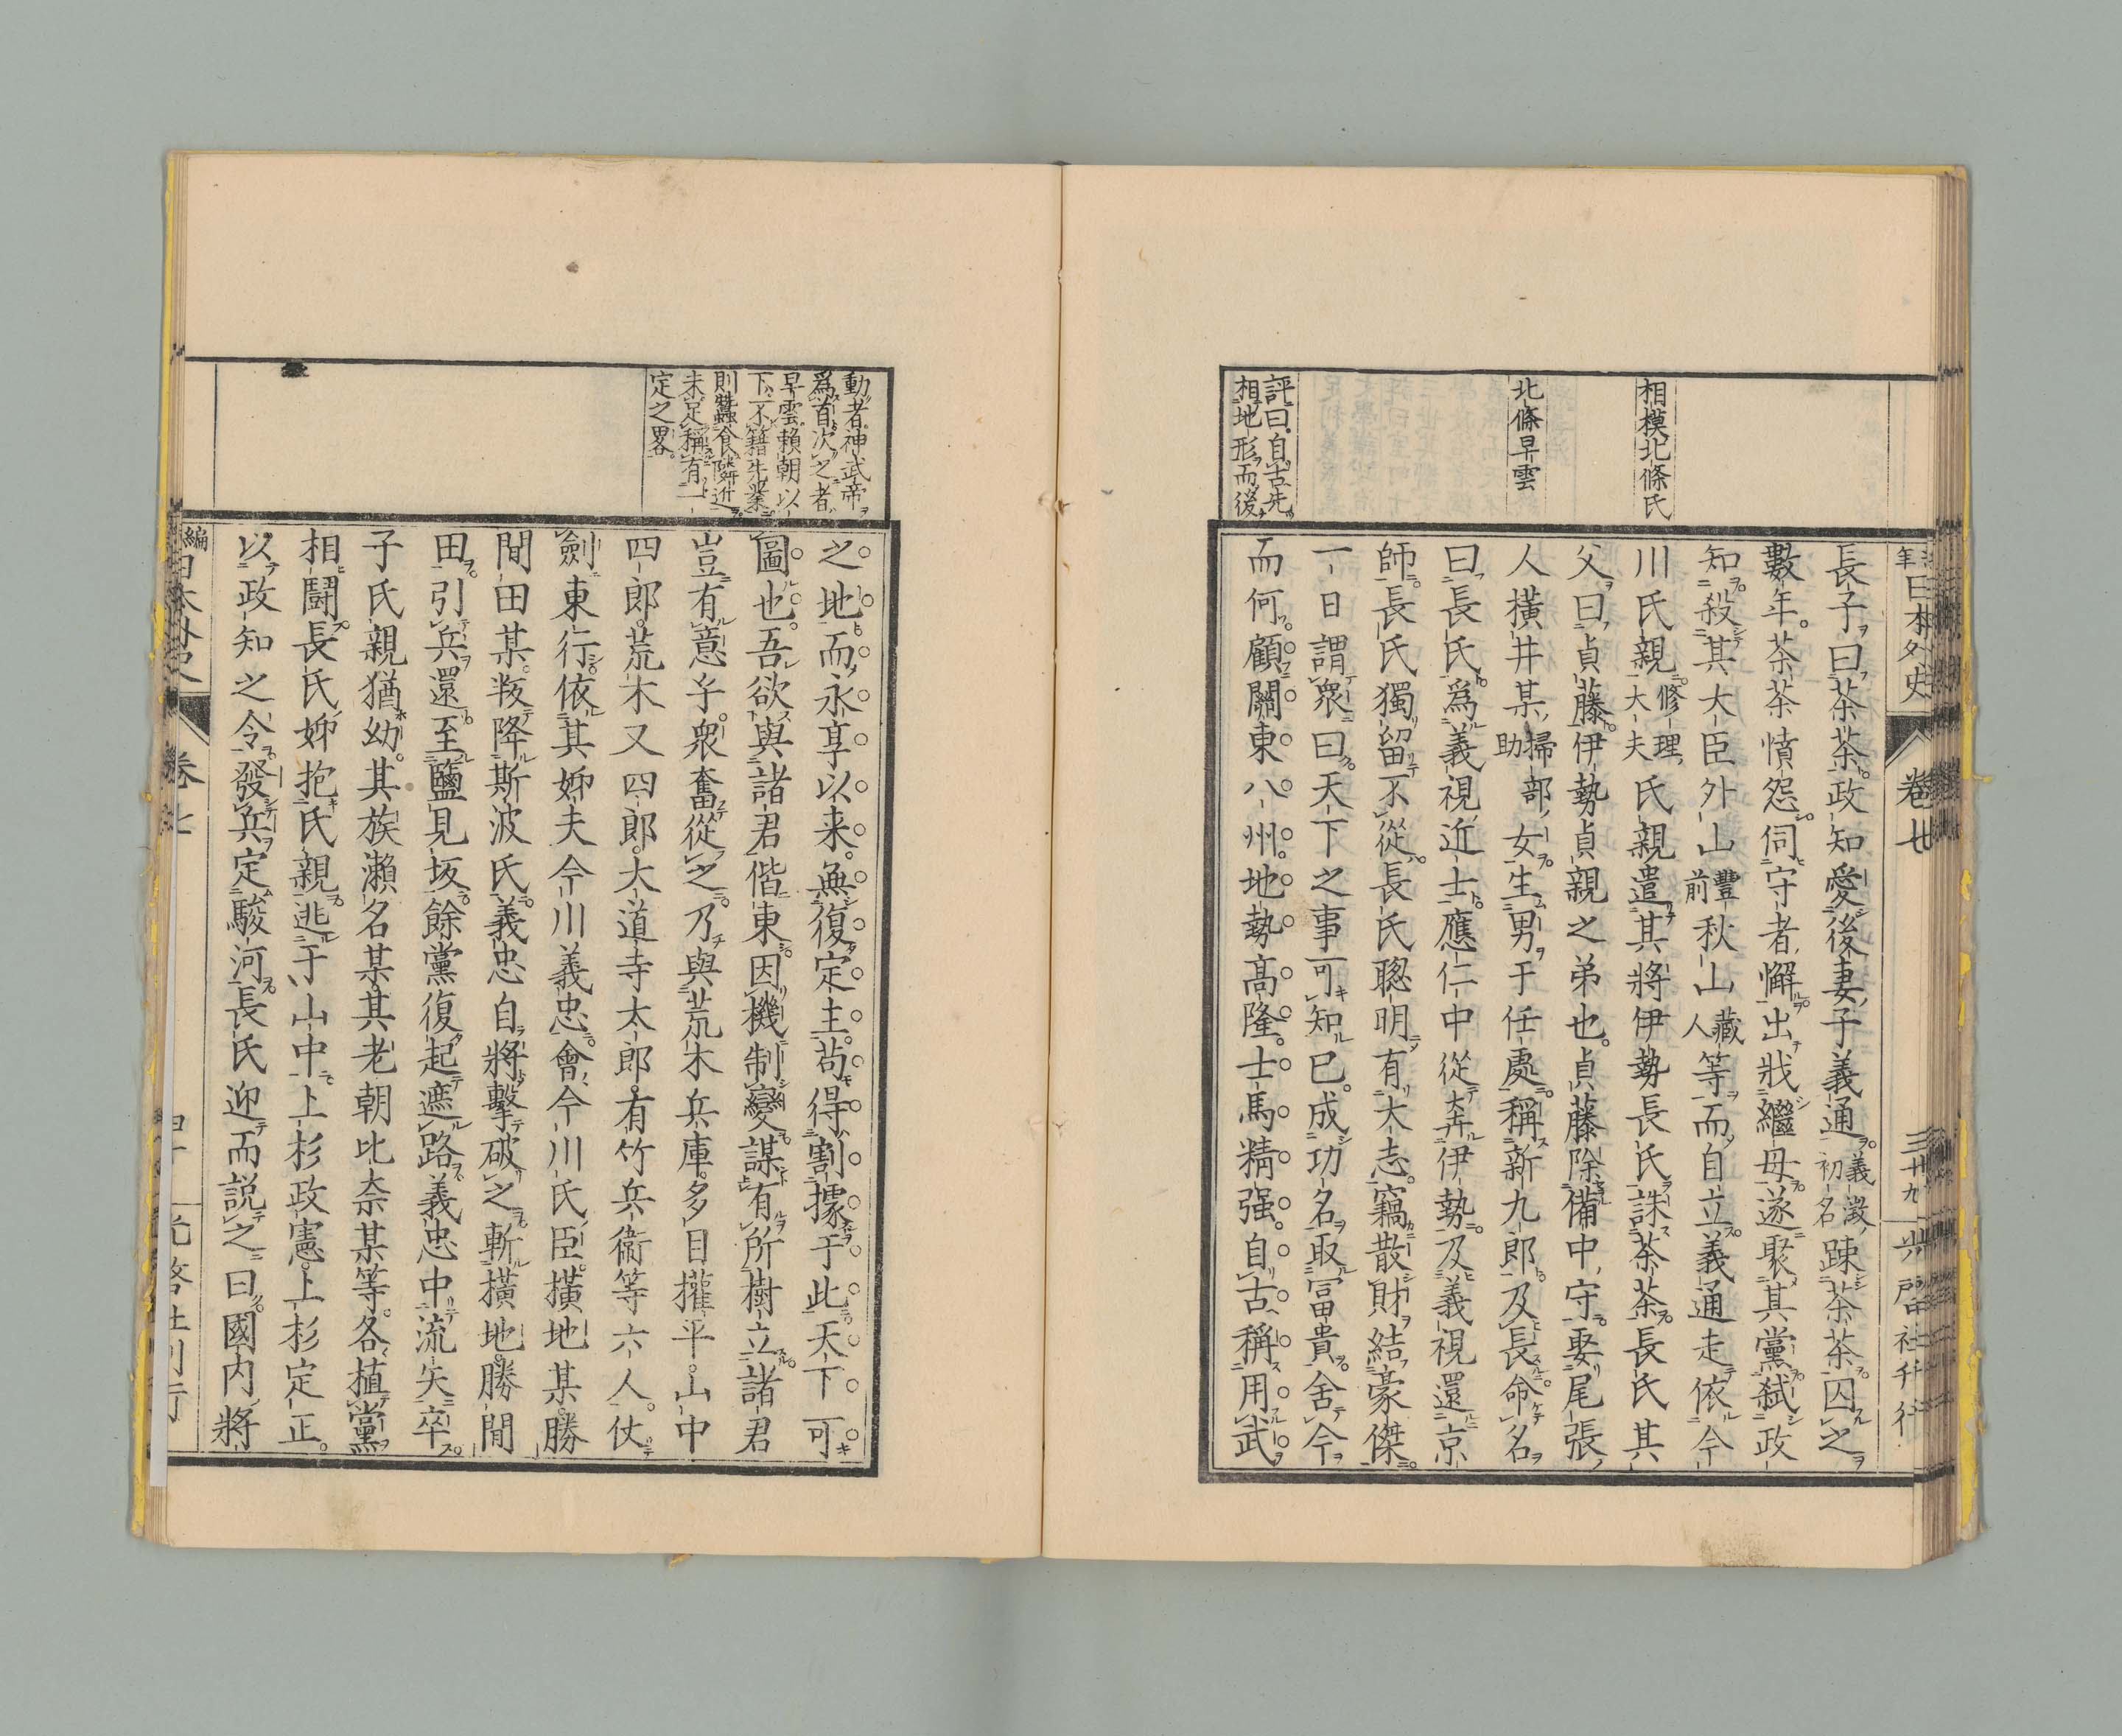 日本外史
卷廿
三十九
相模北條氏
北條早雲
評曰自古先
相地形而後
長子曰茶茶政知愛後妻子義通義澂初名疎茶茶囚之
數年茶茶憤怨伺守者懈出戕繼母遂聚其黨弑政
知殺其大臣外山豐前秋山藏人等而自立義通走依今
川氏親修理大夫氏親遣其將伊勢長氏誅茶茶長氏其
父曰貞藤伊勢貞親之弟也貞藤除備中守娶尾張
人橫井某掃部助女生男于任處稱新九郎及長命名
曰長氏爲義視近士應仁中從奔伊勢及義視還京
師長氏獨留不從長氏聰明有大志竊散財結豪傑
一日謂衆曰天下之事可知已成功名取冨貴舍今
而何顧關東八州地勢高隆士馬精强自古稱用武
動者神武帝
爲首次之者
早雲賴朝以
下不籍先業
則蠶食隣近
未足稱有一
定之畧
之地而永享以来無復定主苟得割據于此天下可
圖也吾欲與諸君偕東因機制變謀有所樹立諸君
豈有意乎衆奮從之乃與荒木兵庫多目權平山中
四郎荒木又四郎大道寺太郎有竹兵衞等六人仗
劍東行依其姊夫今川義忠會今川氏臣橫地某勝
間田某叛降斯波氏義忠自將擊破之斬橫地勝間
田引兵還至鹽見坂餘黨復起遮路義忠中流矢卒
子氏親猶幼其族瀨名某其老朝比奈某等各植黨
相鬪長氏姊抱氏親逃于山中上杉政憲上杉定正
以政知之令發兵定駿河長氏迎而説之曰國内將
編
日本外史
卷廿
四十
光啓社刊行